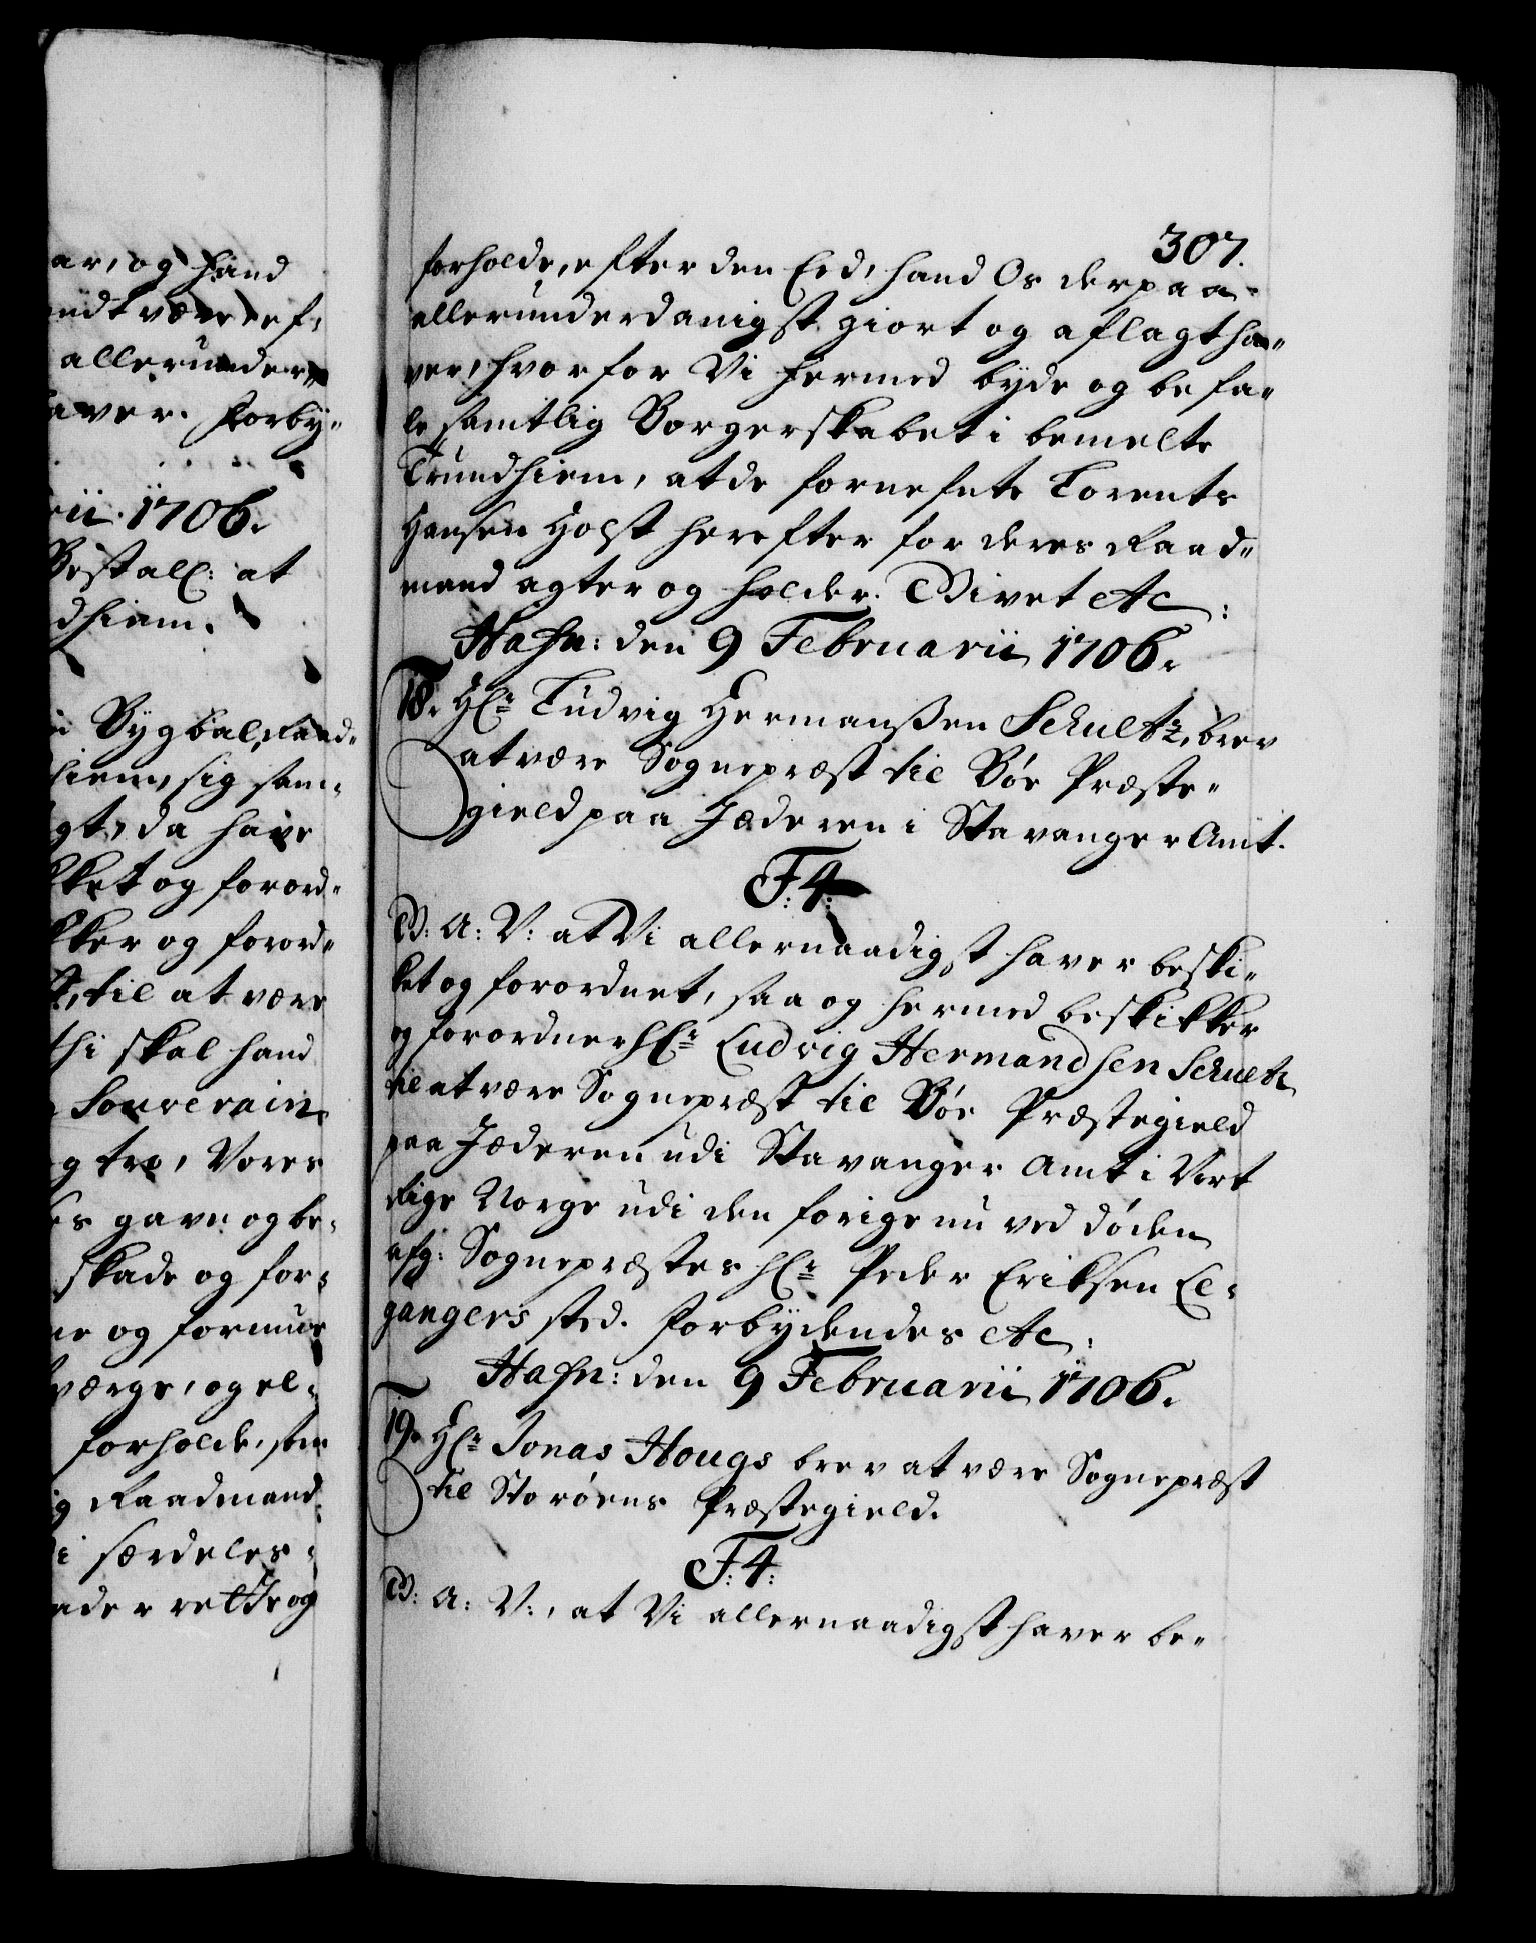 ar, og hand
endt være ef-
allerunder-
aver. Forby-
rii 1706.
Bestall: at
dhiem.
Bygbal, Raad-
hiem, sig sam-
gt, da have
kket og forord-
kker og forord-
til at være
thi skal hand
Souverain
g tro, Vores
es gavn og be-
skade og for-
ne og formue
værge, og el-
forholde, som
g Raadmand
i særdeles-
ader rette og
307.
forholde, efter den Eed, hand Os derpaa
allerunderdanigst giort og aflagt ha-
ver, hvorfor Vi hermed byde og befa-
le samtlig Borgerskabet i bemelte
Trundhiem, at de fornefnte Lorents
Hansen Holst herefter for deres Raad-
mand agter og holder. Givet etc:
Hafn: den 9 Februarii 1706.
18. Hr: Ludvig Hermanßen Schultz, brev
at være Sognepræst til Bøe Præste-
gield paa Jæderen i Stavanger Amt.
F: 4:
G: A: V: at Vi allernaadigst haver beski-
ket og forordnet, saa og hermed beskikker
og forordner Hr: Ludvig Hermandsen Schultz
til at være Sognepræst til Bøe Præstegield
paa Jæderen udi Stavanger Amt i Vort
Rige Norge udi den forige nu ved døden
afg: Sognepræstes Hr: Peder Eriksen Le-
gangers sted. Forbydendes etc:
Hafn: den 9 Februarii 1706.
19. Hr: Jonas Hougs brev at være Sognepræst
til Storøens Præstegield.
F: 4:
G: A: V:, at Vi allernaadigst haver be-